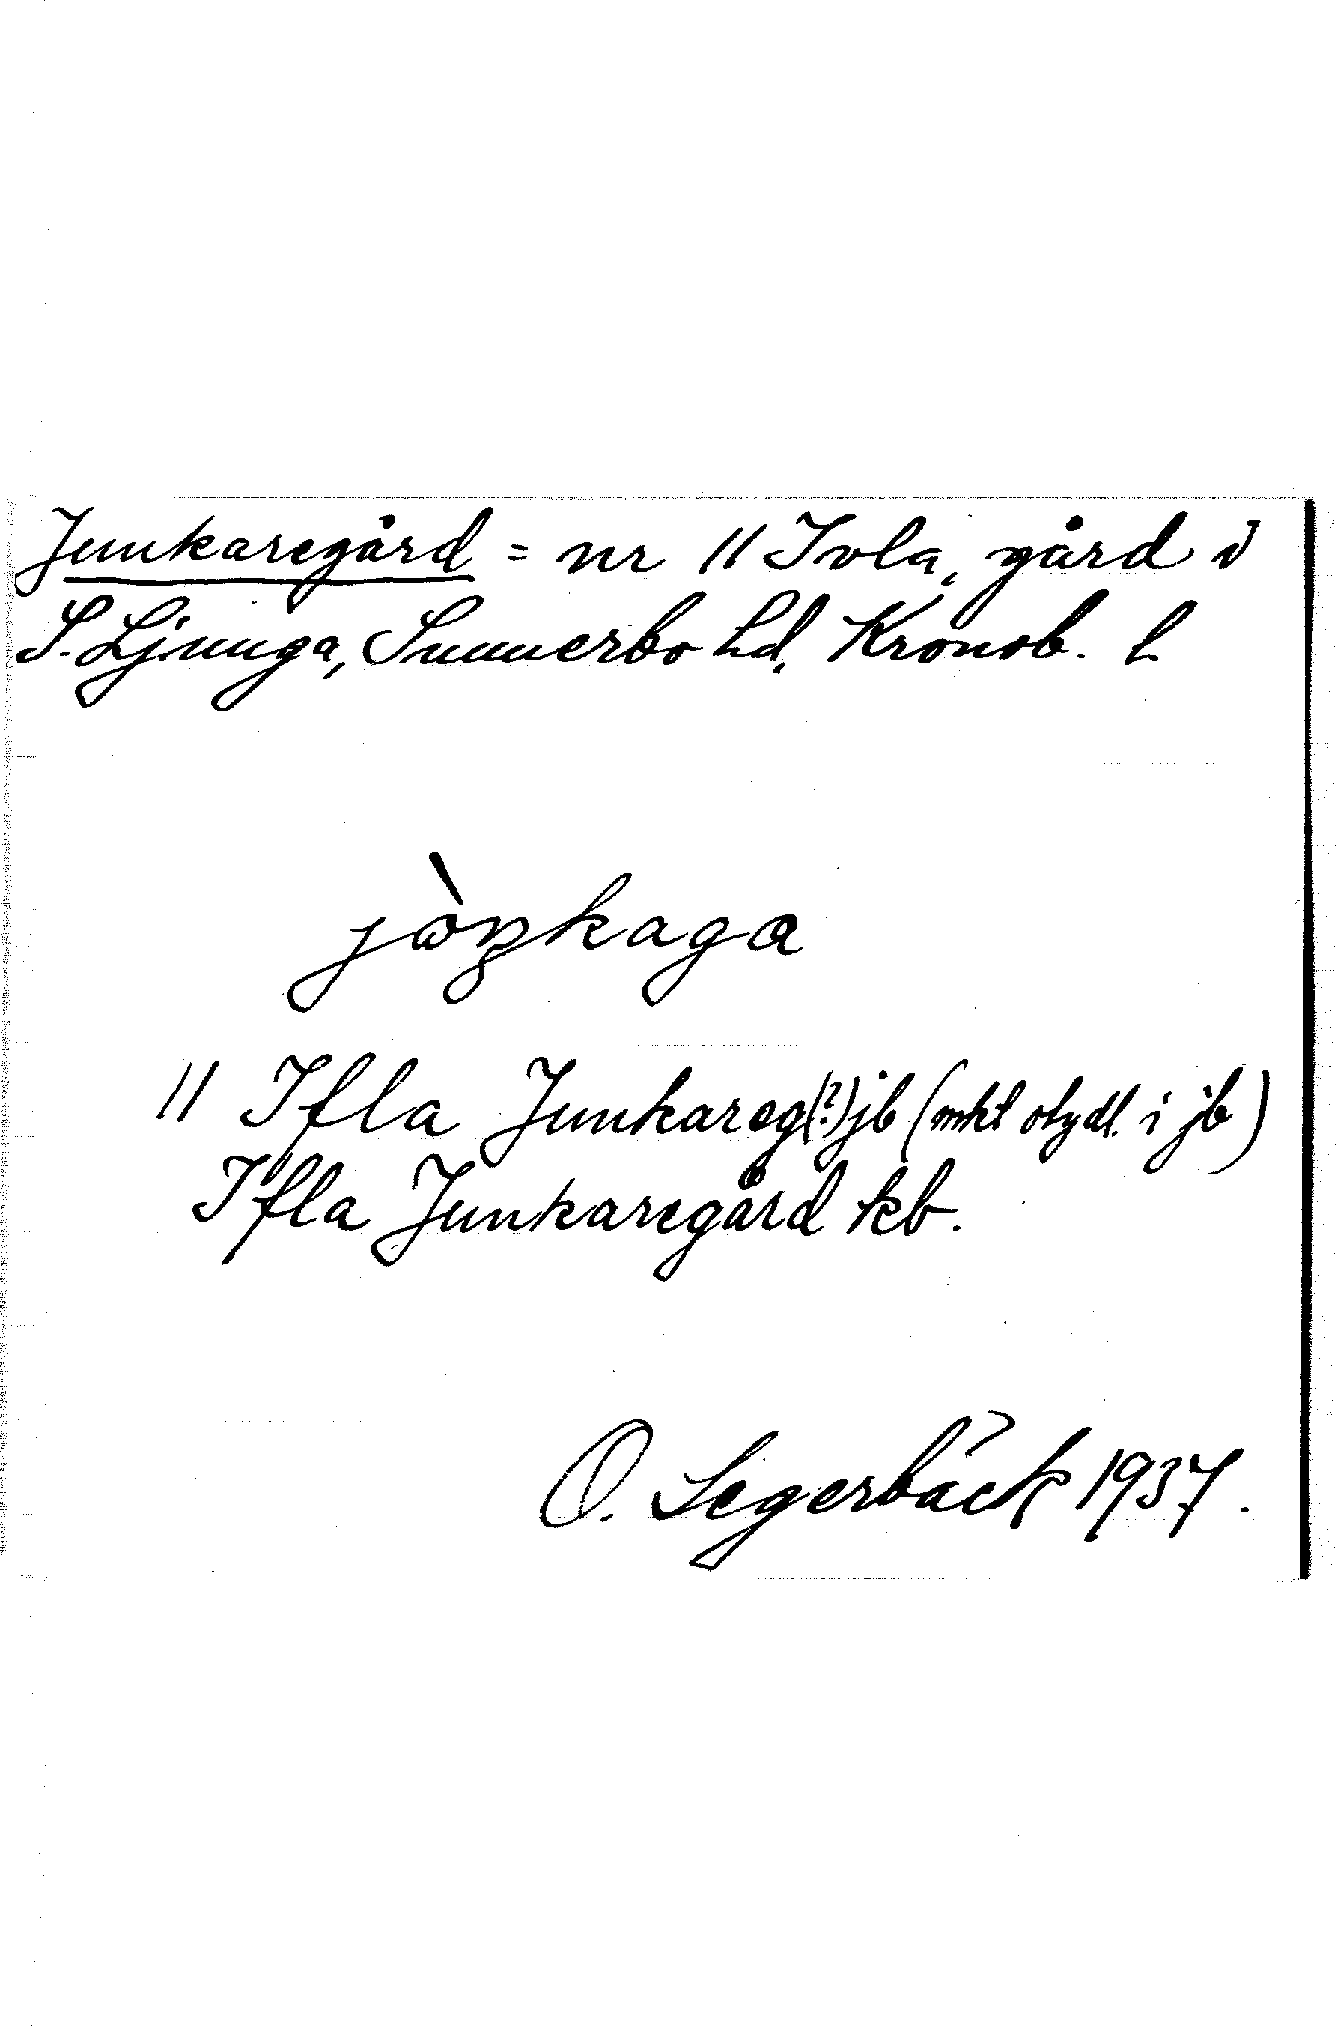 Junkaregård = nr 11 Ivla, gård i
S. Ljunga, Sunnerbo hd, Kronob. l
jòŋkaga
11 Ifla Junkareg(?) jb (mkt otydl. i jb)
Ifla Junkaregård kb.
O. Segerbäck 1937.